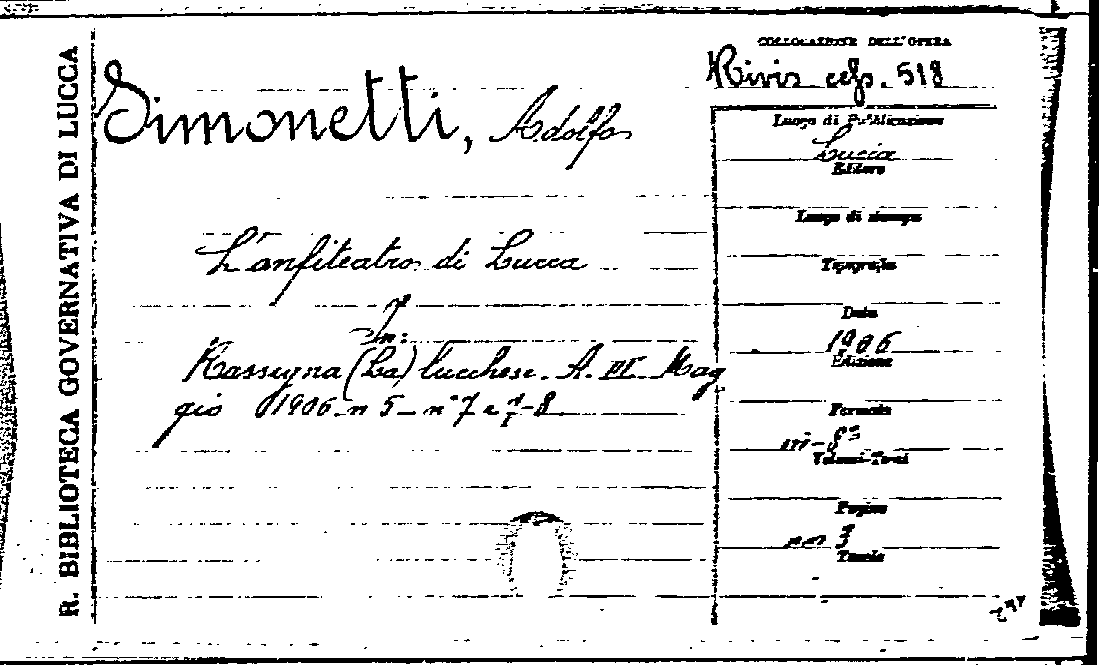 R. BIBLIOTECA GOVERNATIVA DI LUCCA
COLLOCAZIONE DELL'OPERA
Rivis cass. 518
Simonetti, Adolfo
L'anfiteatro di Lucca
In:
Rassegna (La) lucchese. A. III. Mag
gio 1906. n 5 - n° 7 e 7-8
Luogo di Pubblicazione
Lucca
Editore
Luogo di stampa
Tipografia
Data
1906
Edizione
Formato
in-8°
Volumi-Tomi
Pagine
nn 3
Tavole